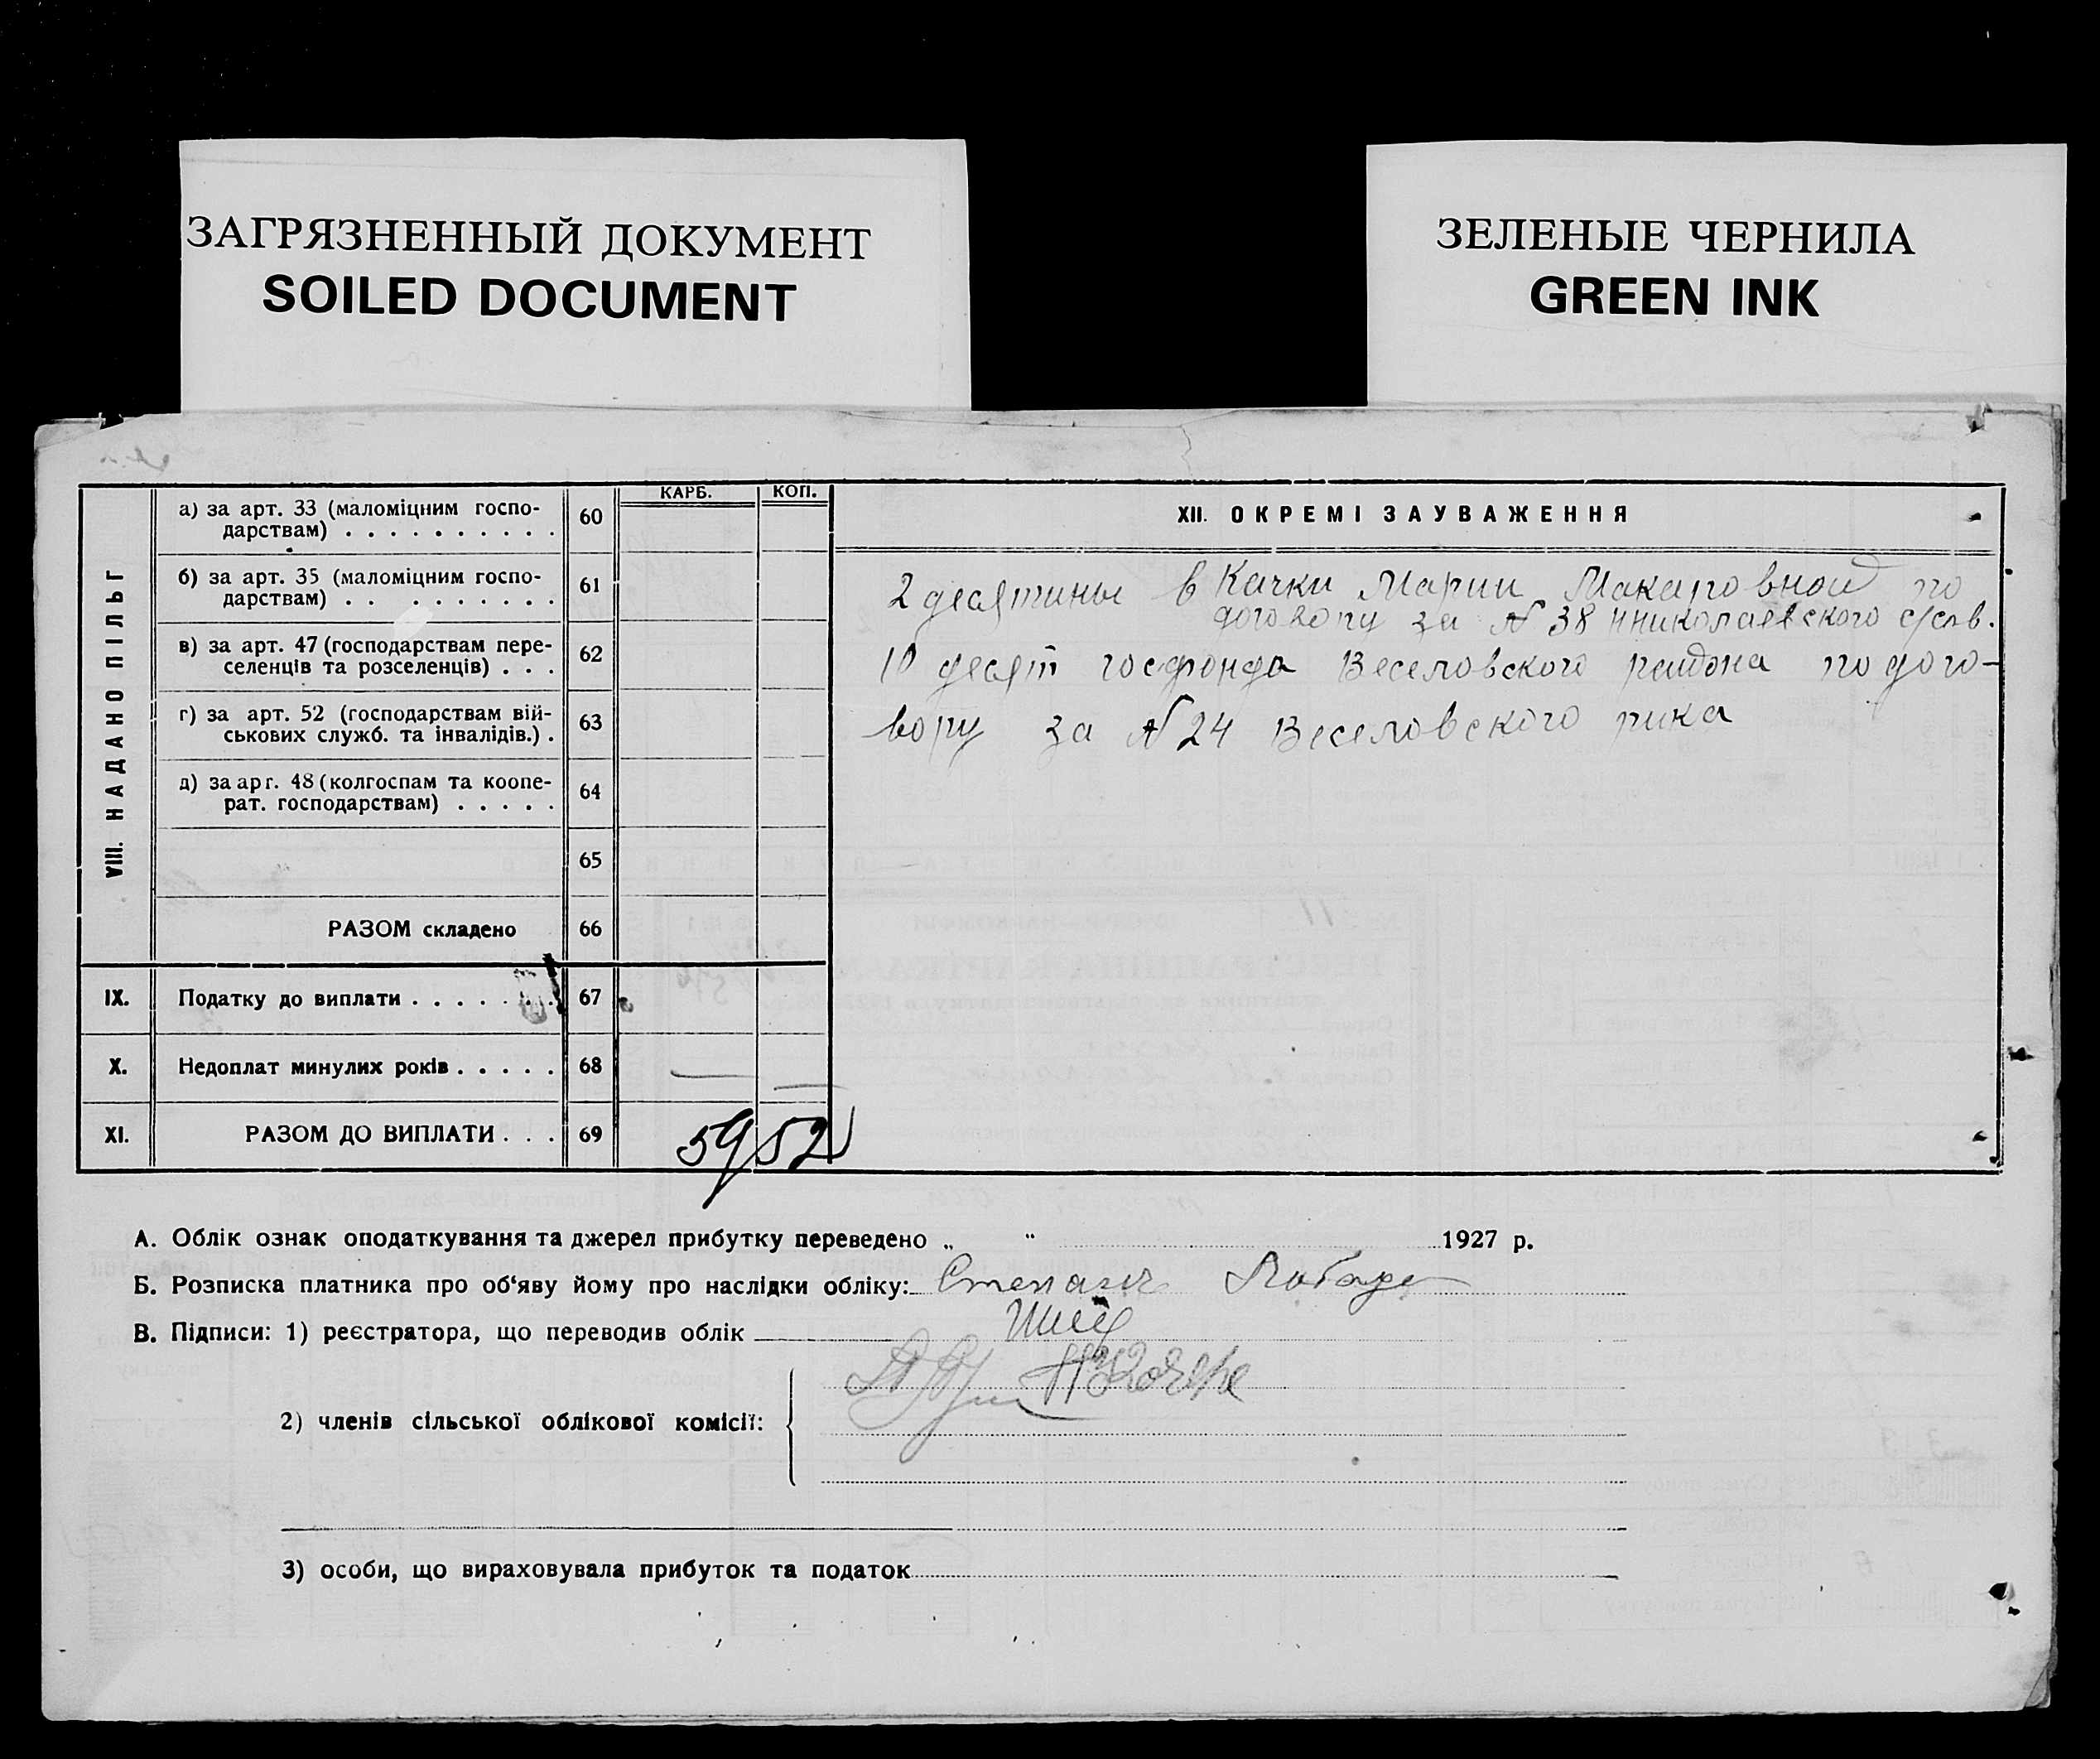 ЗАГРЯЗНЕННЫЙ ДОКУМЕНТ
SOILED DOCUMENT
ЗЕЛЕНЫЕ ЧЕРНИЛА
GREEN INK
VIII. НАДАНО ПІЛЬГ
КАРБ. КОП.
а) за арт. 33 (маломіцним госпо-
дарствам) . . . . . . . . . . 60
б) за арт. 35 (маломіцним госпо-
дарствам) . . . . . . . . . 61
в) за арт. 47 (господарствам пере-
селенців та розселенців) . . . 62
г) за арт. 52 (господарствам вій-
ськових служб. та інвалідів.) . 63
д) за арт. 48 (колгоспам та коопе-
рат. господарствам) . . . . . 64
65
РАЗОМ складено 66
IX. Податку до виплати . . . . . . . 67
X. Недоплат минулих років . . . . . 68 — —
XI. РАЗОМ ДО ВИПЛАТИ . . . 69 59 52
XII. ОКРЕМІ ЗАУВАЖЕННЯ
2 десятины в Качки Марии Макаровной по
договору за № 38 Николаевского с/сов.
10 десят госфонда Веселовского района по дого-
вору за № 24 Веселовского рика
А. Облік ознак оподаткування та джерел прибутку переведено „ “ 1927 р.
Б. Розписка платника про об‘яву йому про наслідки обліку: Степан
В. Підписи: 1) реєстратора, що переводив облік
2) членів сільської облікової комісії:
3) особи, що вираховувала прибуток та податок